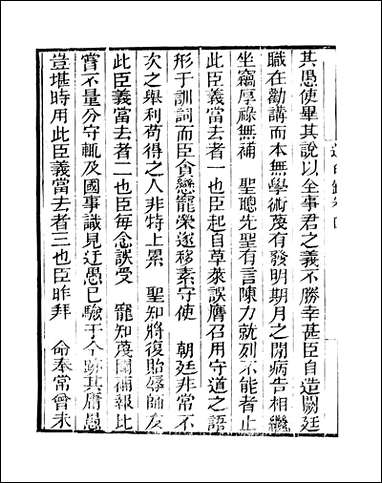 其愚使畢其說以全事君之義不勝幸甚臣自造闕廷
職在勸講而本無學術蔑有發明期月之閒病告相繼
坐竊厚祿無補 聖聰先聖有言陳力就列不能者止
此臣義當去者一也臣起自草萊誤膺召用守道之語
形于訓詞而臣貪戀寵榮遂移素守使 朝廷非常不
次之舉利苟得之人非特上累 聖知將復貽辱師友
此臣義當去者二也臣每念誤受 寵知蔑圖補報比
嘗不量分守輒及國事識見迂愚已驗于今跡其庸愚
豈堪時用此臣義當去者三也臣昨拜 命奉常曾未